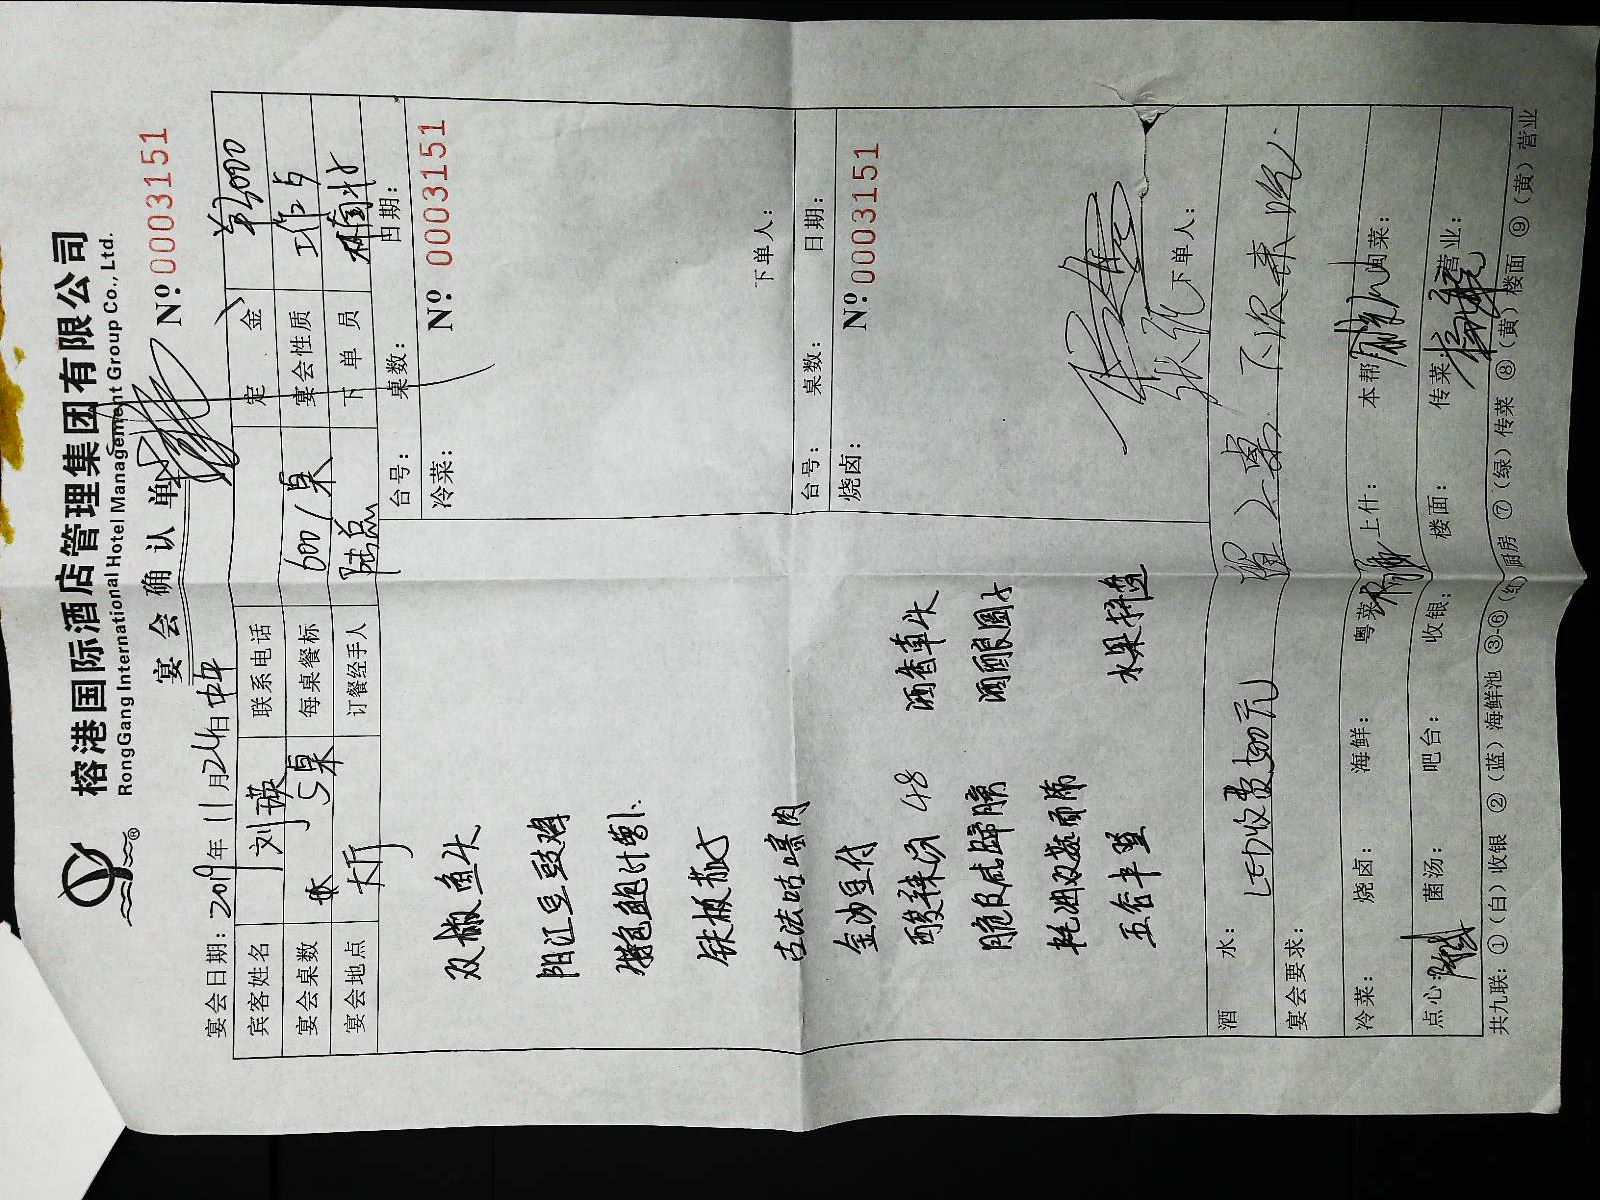 榕港国际酒店管理集团有限公司
RongGang International Hotel Management Group Co., Ltd.
宴会确认单
Nº:0003151
宴会日期: 2019年11月24日中午
宾客姓名 刘瑛 联系电话 定金
宴会桌数 5桌 每桌餐标 600/桌 宴会性质
宴会地点 大厅 订餐经手人 陆总 下单员
台号: 桌数: 日期:
冷菜: Nº: 0003151
双椒鱼头
阳江豆豉鸡
特色鲍汁萝卜
铁板
古法咕咾肉
下单人:
台号: 桌数: 日期:
烧卤: Nº:0003151
金沙豆付
酸辣 48 酒香草头
脆皮咸蹄髈 酒酿圆子
蚝油双菇面筋
五谷丰登 水果拼盘
下单人:
酒水: LED收费500元
宴会要求:
冷菜: 烧卤: 海鲜: 粤菜: 上什: 本帮: 闽菜:
点心: 菌汤: 吧台: 收银: 楼面: 传菜: 营业:
共九联: ①(白)收银 ②(蓝)海鲜池 ③-⑥(红)厨房 ⑦(绿)传菜 ⑧(黄)楼面 ⑨(黄)营业